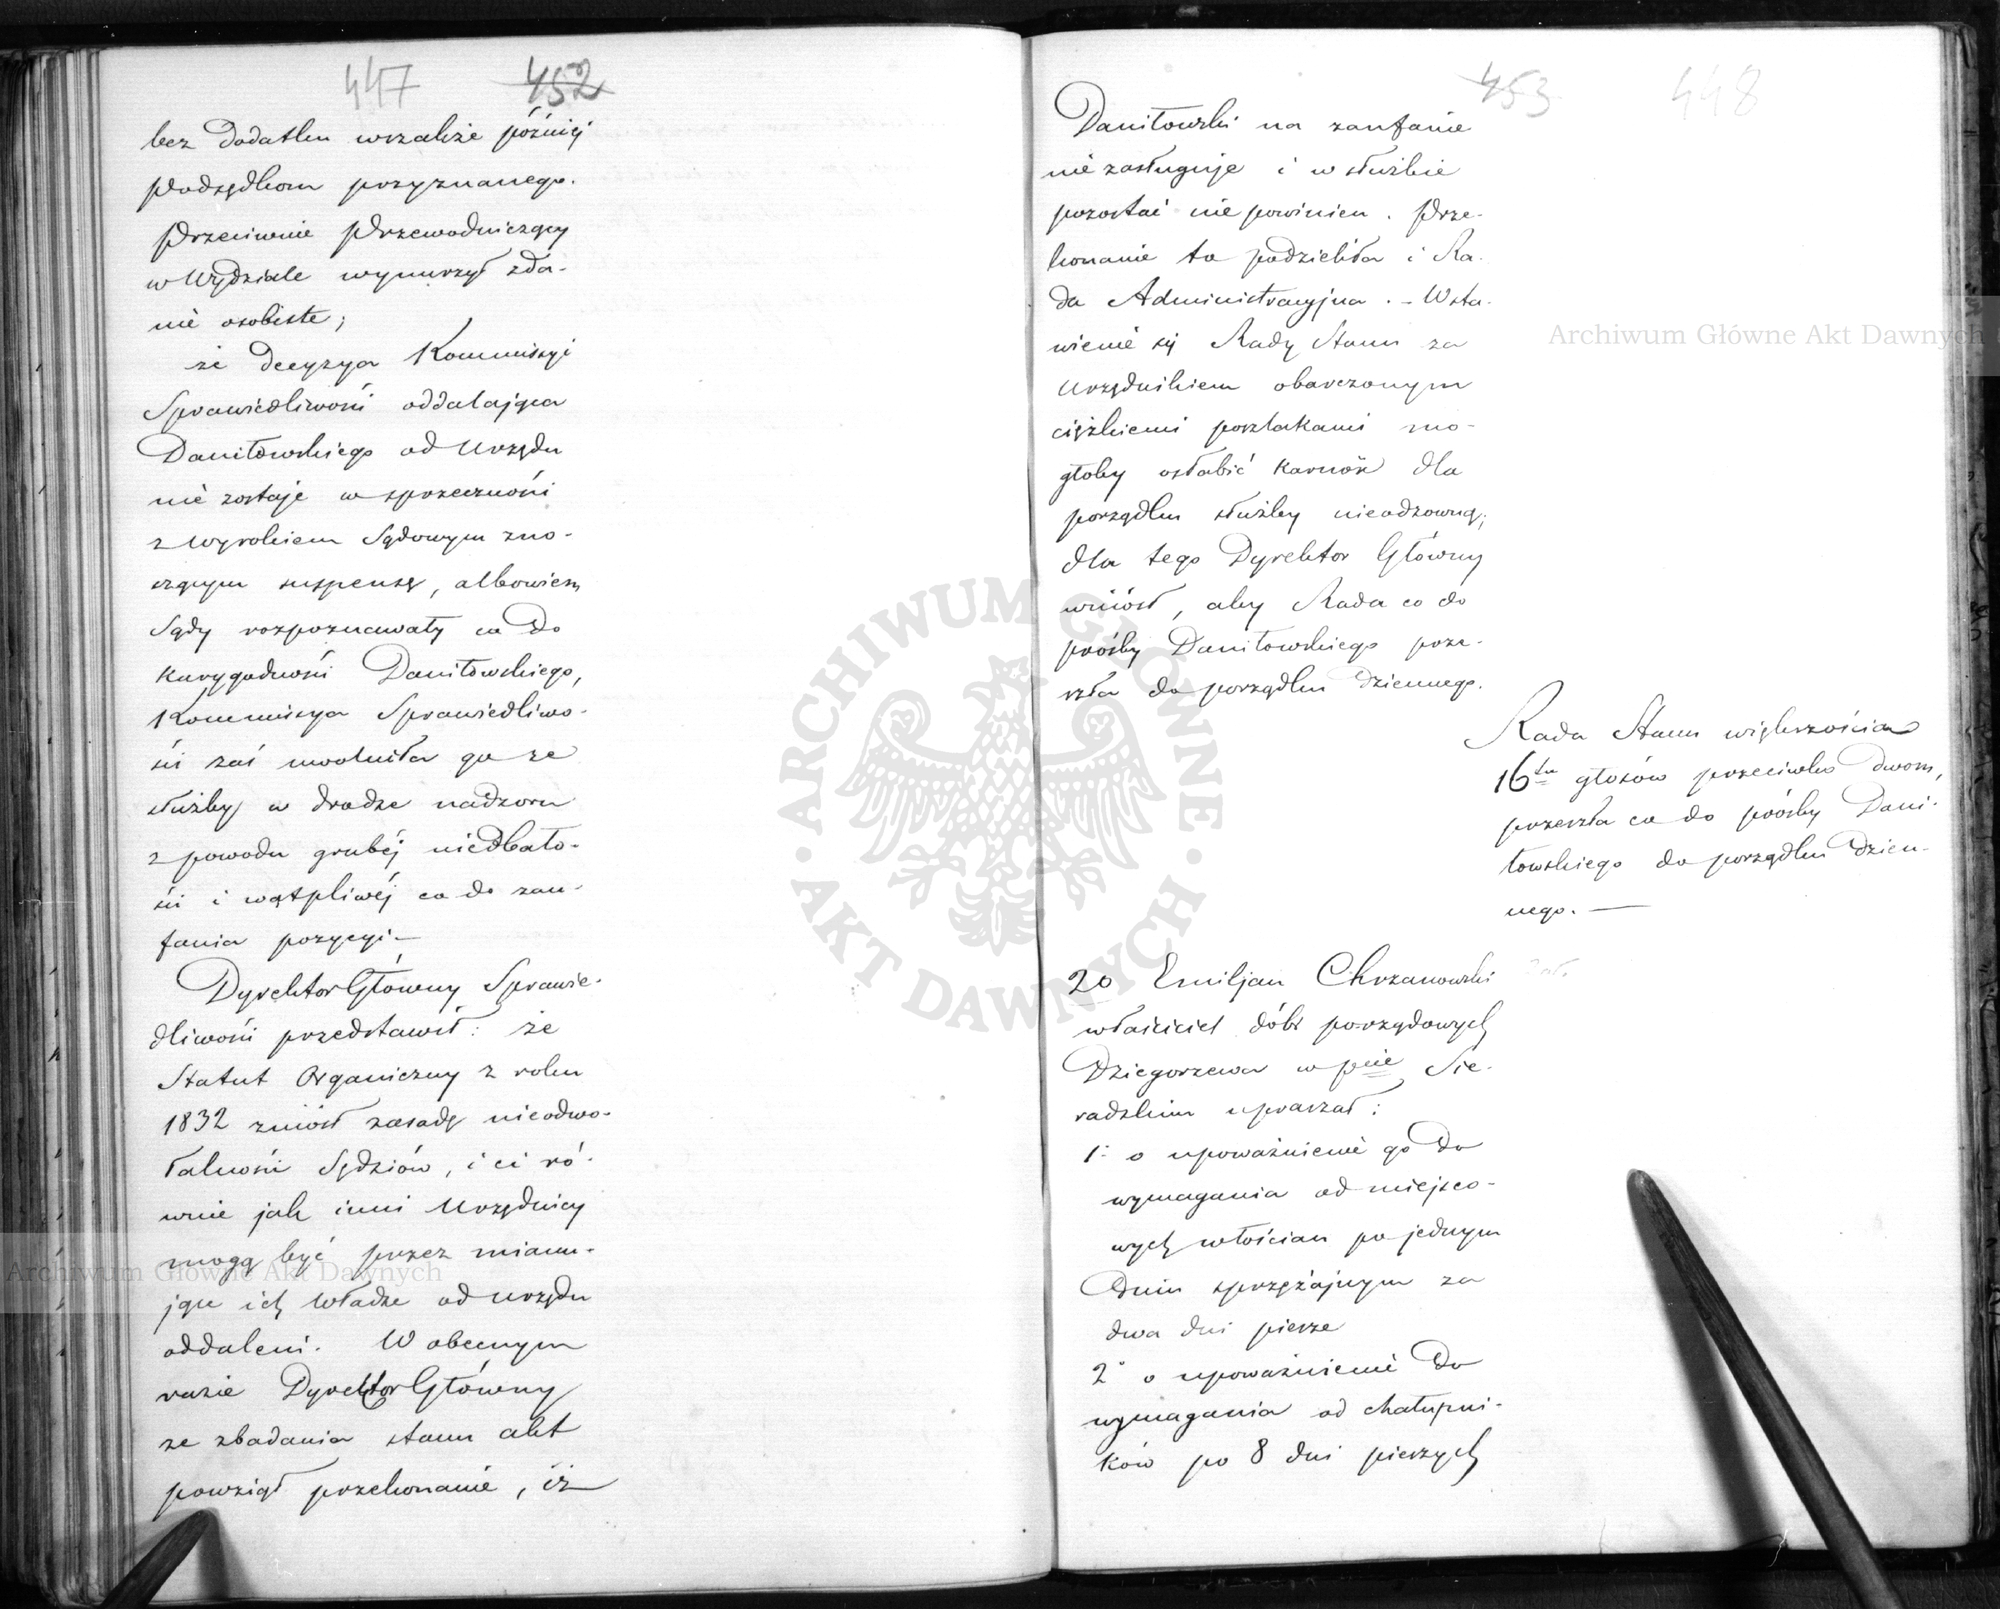 447 452
bez dodatku wszakże później
Podsędkom przyznanego.
Przeciwnie Przewodniczący
w Wydziale wynurzył zda-
nie osobiste;
że decyzya Kommissyi
Sprawiedliwości oddalająca
Daniłowskiego od Urzędu
nie zostaje w sprzeczności
z wyrokiem Sądowym zno-
szącym suspensę, albowiem
Sądy rozpoznawały co do
karygodności Daniłowskiego,
Kommissya Sprawiedliwo-
ści zaś uwolniła go ze
służby w drodze nadzoru
z powodu grubéj niedbało-
ści i wątpliwéj co do zau-
fania pozycyi –
Dyrektor Główny Sprawie-
dliwości przedstawił: że
Statut Organiczny z roku
1832 zniósł zasadę nieodwo-
łalności Sędziów, i ci ró-
wnie jak inni Urzędnicy
mogą być przez mianu-
jące ich władze od urzędu
oddaleni. W obecnym
razie Dyrektor Główny
ze zbadania stanu akt
powziął przekonanie, iż
453 448
Daniłowski na zaufanie
nie zasługuje i w służbie
pozostać nie powinien. Prze-
konanie to podzieliła i Ra-
da Administracyjna. – Wsta-
wienie się Rady Stanu za
Urzędnikiem obarczonym
ciężkiemi poszlakami mo-
głoby osłabić karność dla
porządku służby nieodzowną;
dla tego Dyrektor Główny
wniósł, aby Rada co do
prośby Daniłowskiego prze-
szła do porządku dziennego.
Rada Stanu większością
16tu głosów przeciwko dwom,
przeszła co do prośby Dani-
łowskiego do porządku dzien-
nego. —
20 Emiljan Chrzanowski
właściciel dóbr porządowych
Dziegorzewa w pcie Sie-
radzkim upraszał:
1° o upoważnienie go do
wymagania od miejsco-
wych włościan po jednym
dniu sprzężajnym za
dwa dni piesze
2° o upoważnienie do
wymagania od chałupni-
ków po 8 dni pieszych
Archiwum Główne Akt Dawnych
Archiwum Główne Akt Dawnych
ARCHIWUM GŁÓWNE · AKT DAWNYCH ·